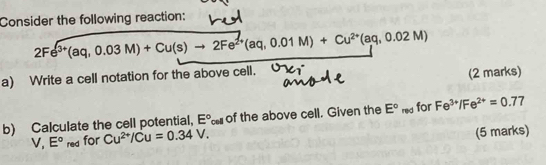 Consider the following reaction: red
2Fe³⁺(aq, 0.03 M) + Cu(s) → 2Fe²⁺(aq, 0.01 M) + Cu²⁺(aq, 0.02 M)
oxi
anode
a) Write a cell notation for the above cell. (2 marks)
b) Calculate the cell potential, E°cell of the above cell. Given the E° red for Fe³⁺/Fe²⁺ = 0.77
V, E° red for Cu²⁺/Cu = 0.34 V. (5 marks)